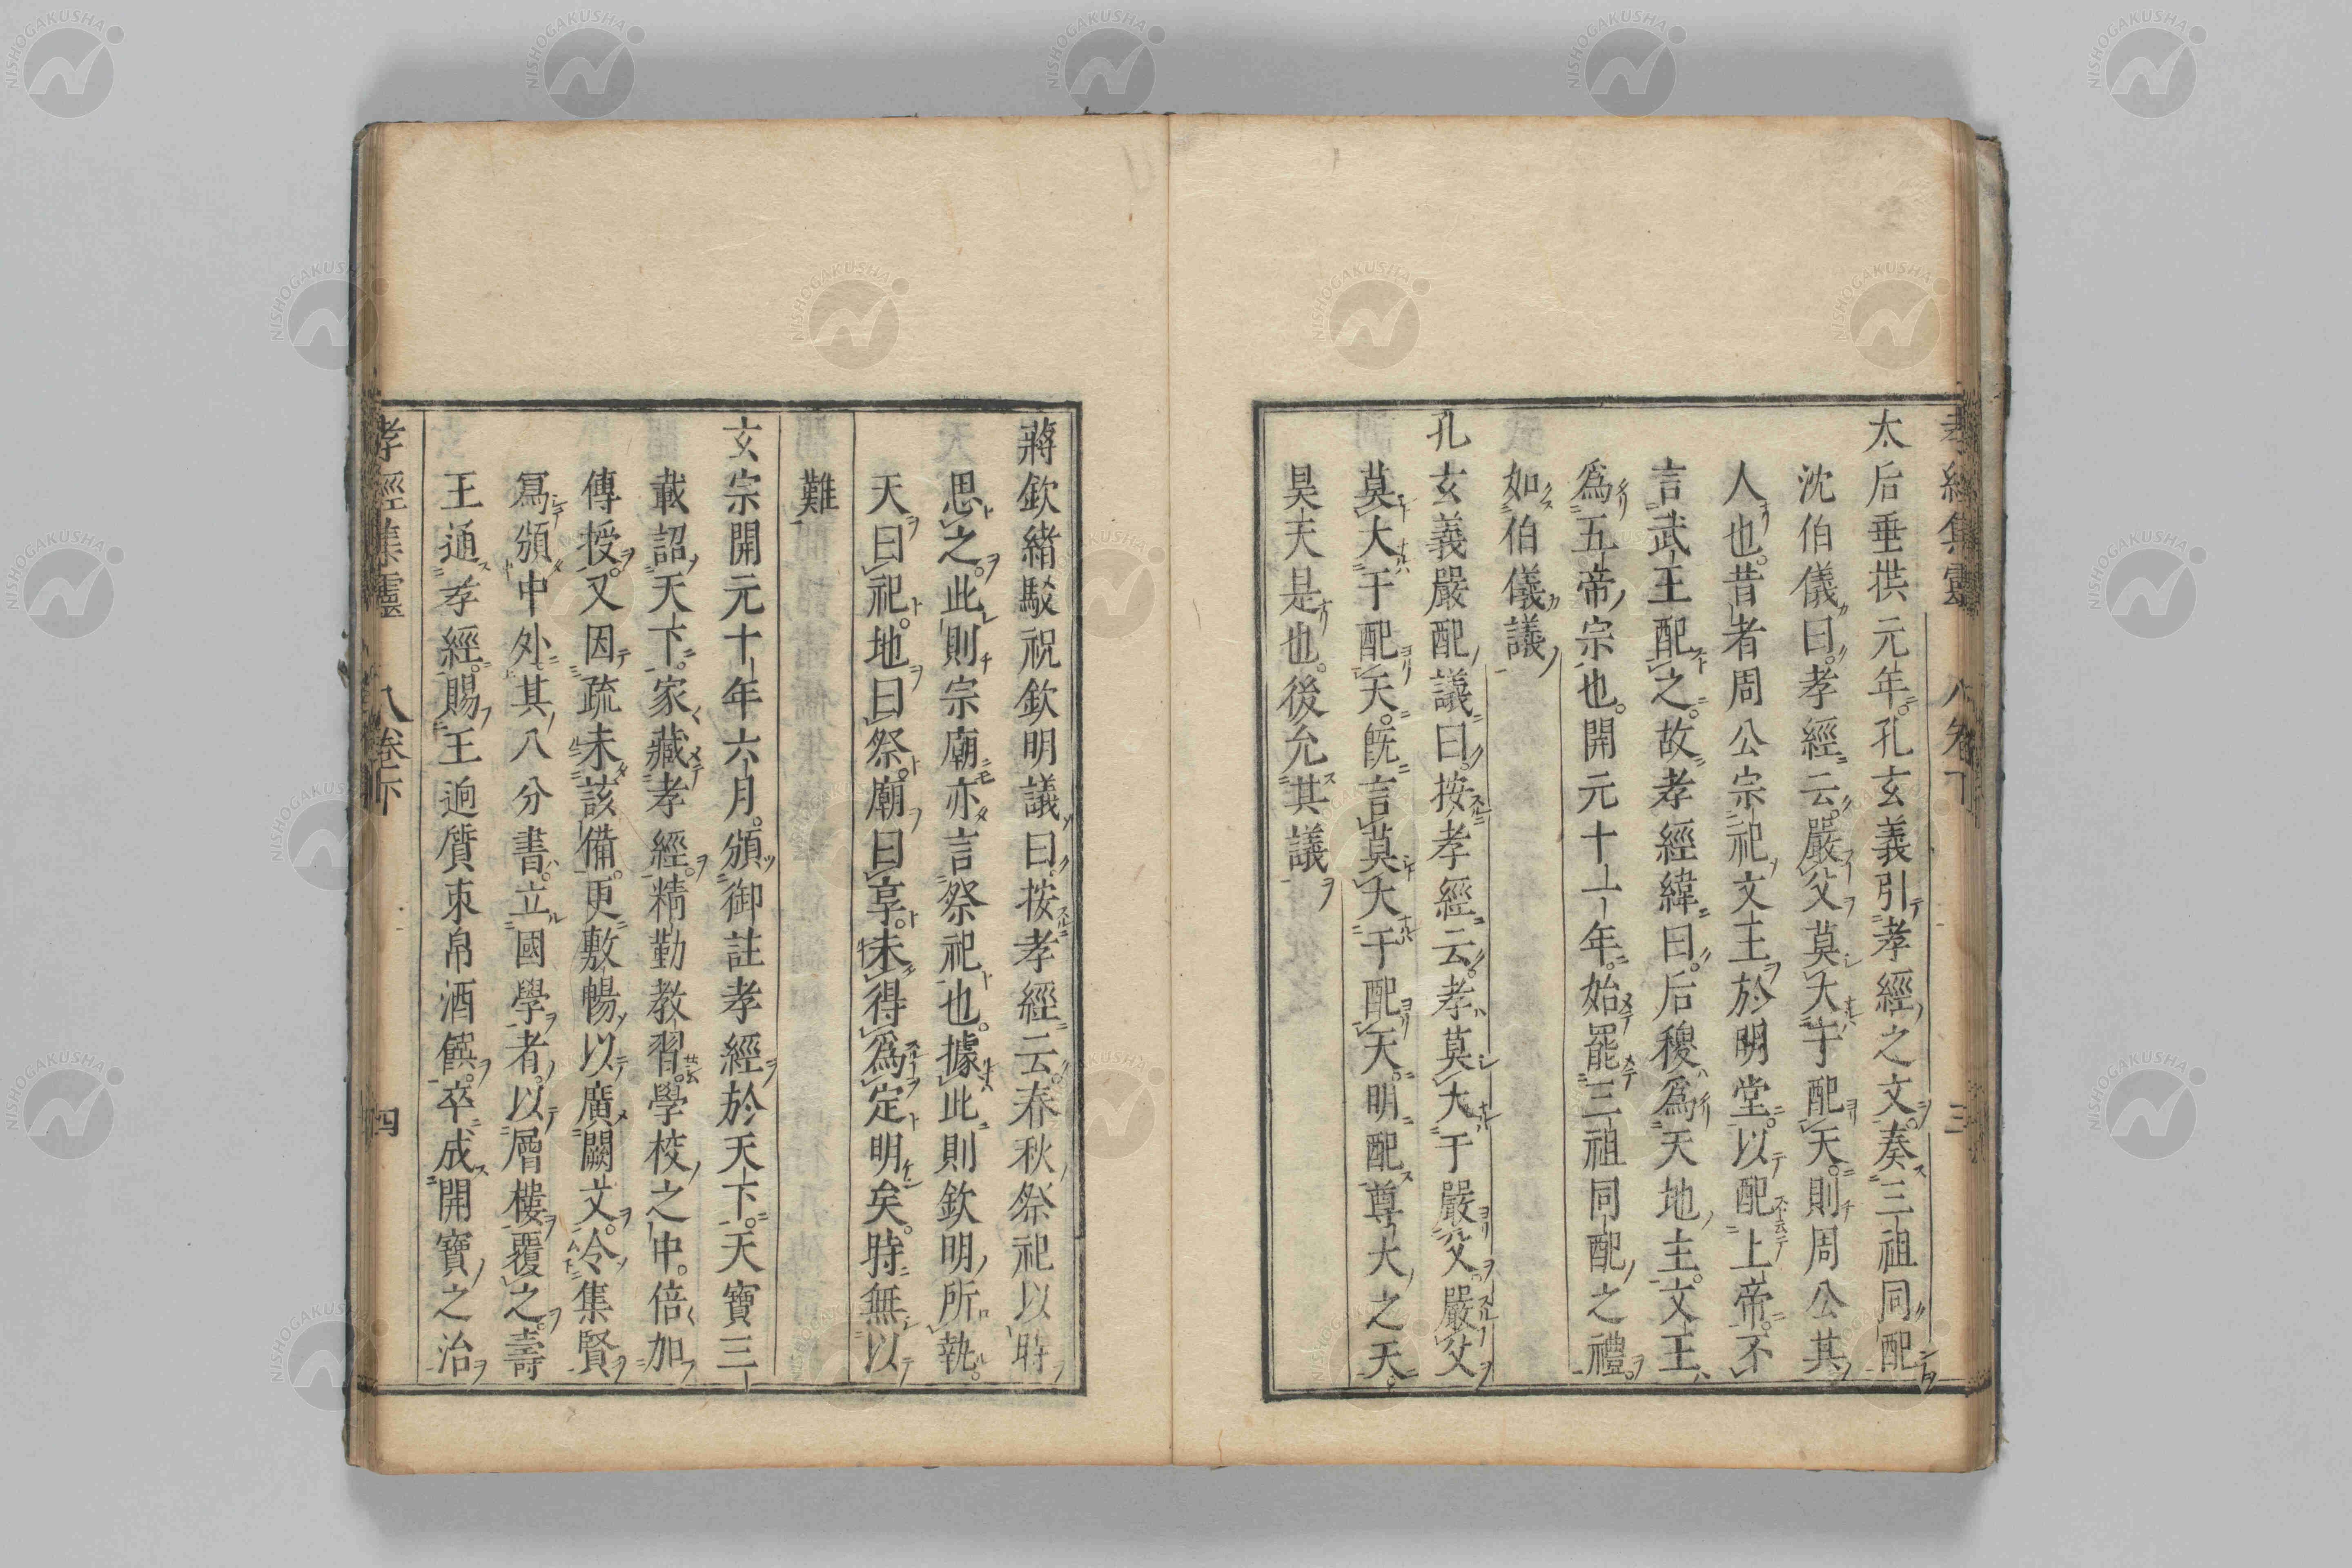 孝經集靈 卷下 三
太后垂拱元年孔玄義引孝經之文奏三祖同配
沈伯儀曰孝經云嚴父莫大于配天則周公其
人也昔者周公宗祀文王於明堂以配上帝不
言武王配之故孝經緯曰后稷爲天地主文王
爲五帝宗也開元十一年始罷三祖同配之禮
如伯儀議
孔玄義嚴配議曰按孝經云孝莫大于嚴父嚴父
莫大于配天旣言莫大于配天明配尊大之天
昊天是也後允其議
蔣欽緒駁祝欽明議曰按孝經云春秋祭祀以時
思之此則宗廟亦言祭祀也據此則欽明所執
天曰祀地曰祭廟曰享未得爲定明矣時無以
難
玄宗開元十年六月頒御註孝經於天下天寶三
載詔天下家藏孝經精勤教習學校之中倍加
傳授又因疏未該備更敷暢以廣闕文令集賢
寫頒中外其八分書立國學者以層樓覆之壽
王通孝經賜王迥質束帛酒饌卒成開寶之治
孝經集靈 卷下 四
NISHOGAKUSHA